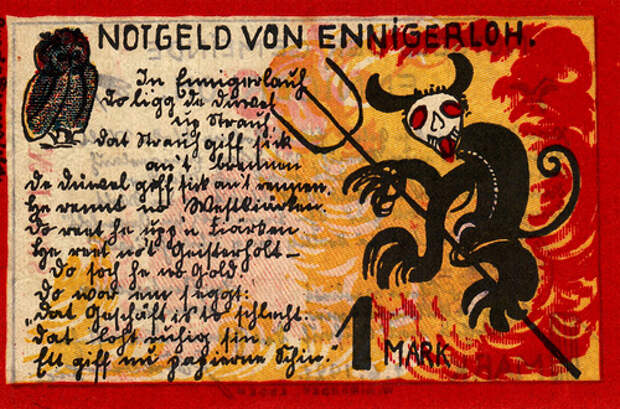 NOTGELD VON ENNIGERLOH.
In Ennigerlauh
Do ligg de duwel
up Strauh
dat Strauh giff sick
an't brennen
de duiwel giff sick an't rennen.
He rennt no Westkiärken.
do reet he upp'n Fiärken
He reet no't Geisterholt—
Do soch he no Gold
Do wor em seggt:
„Dat Geschäft is to schlecht.
Dat loht ruhig sin
Ett giff nu papierne Schin."
1 MARK